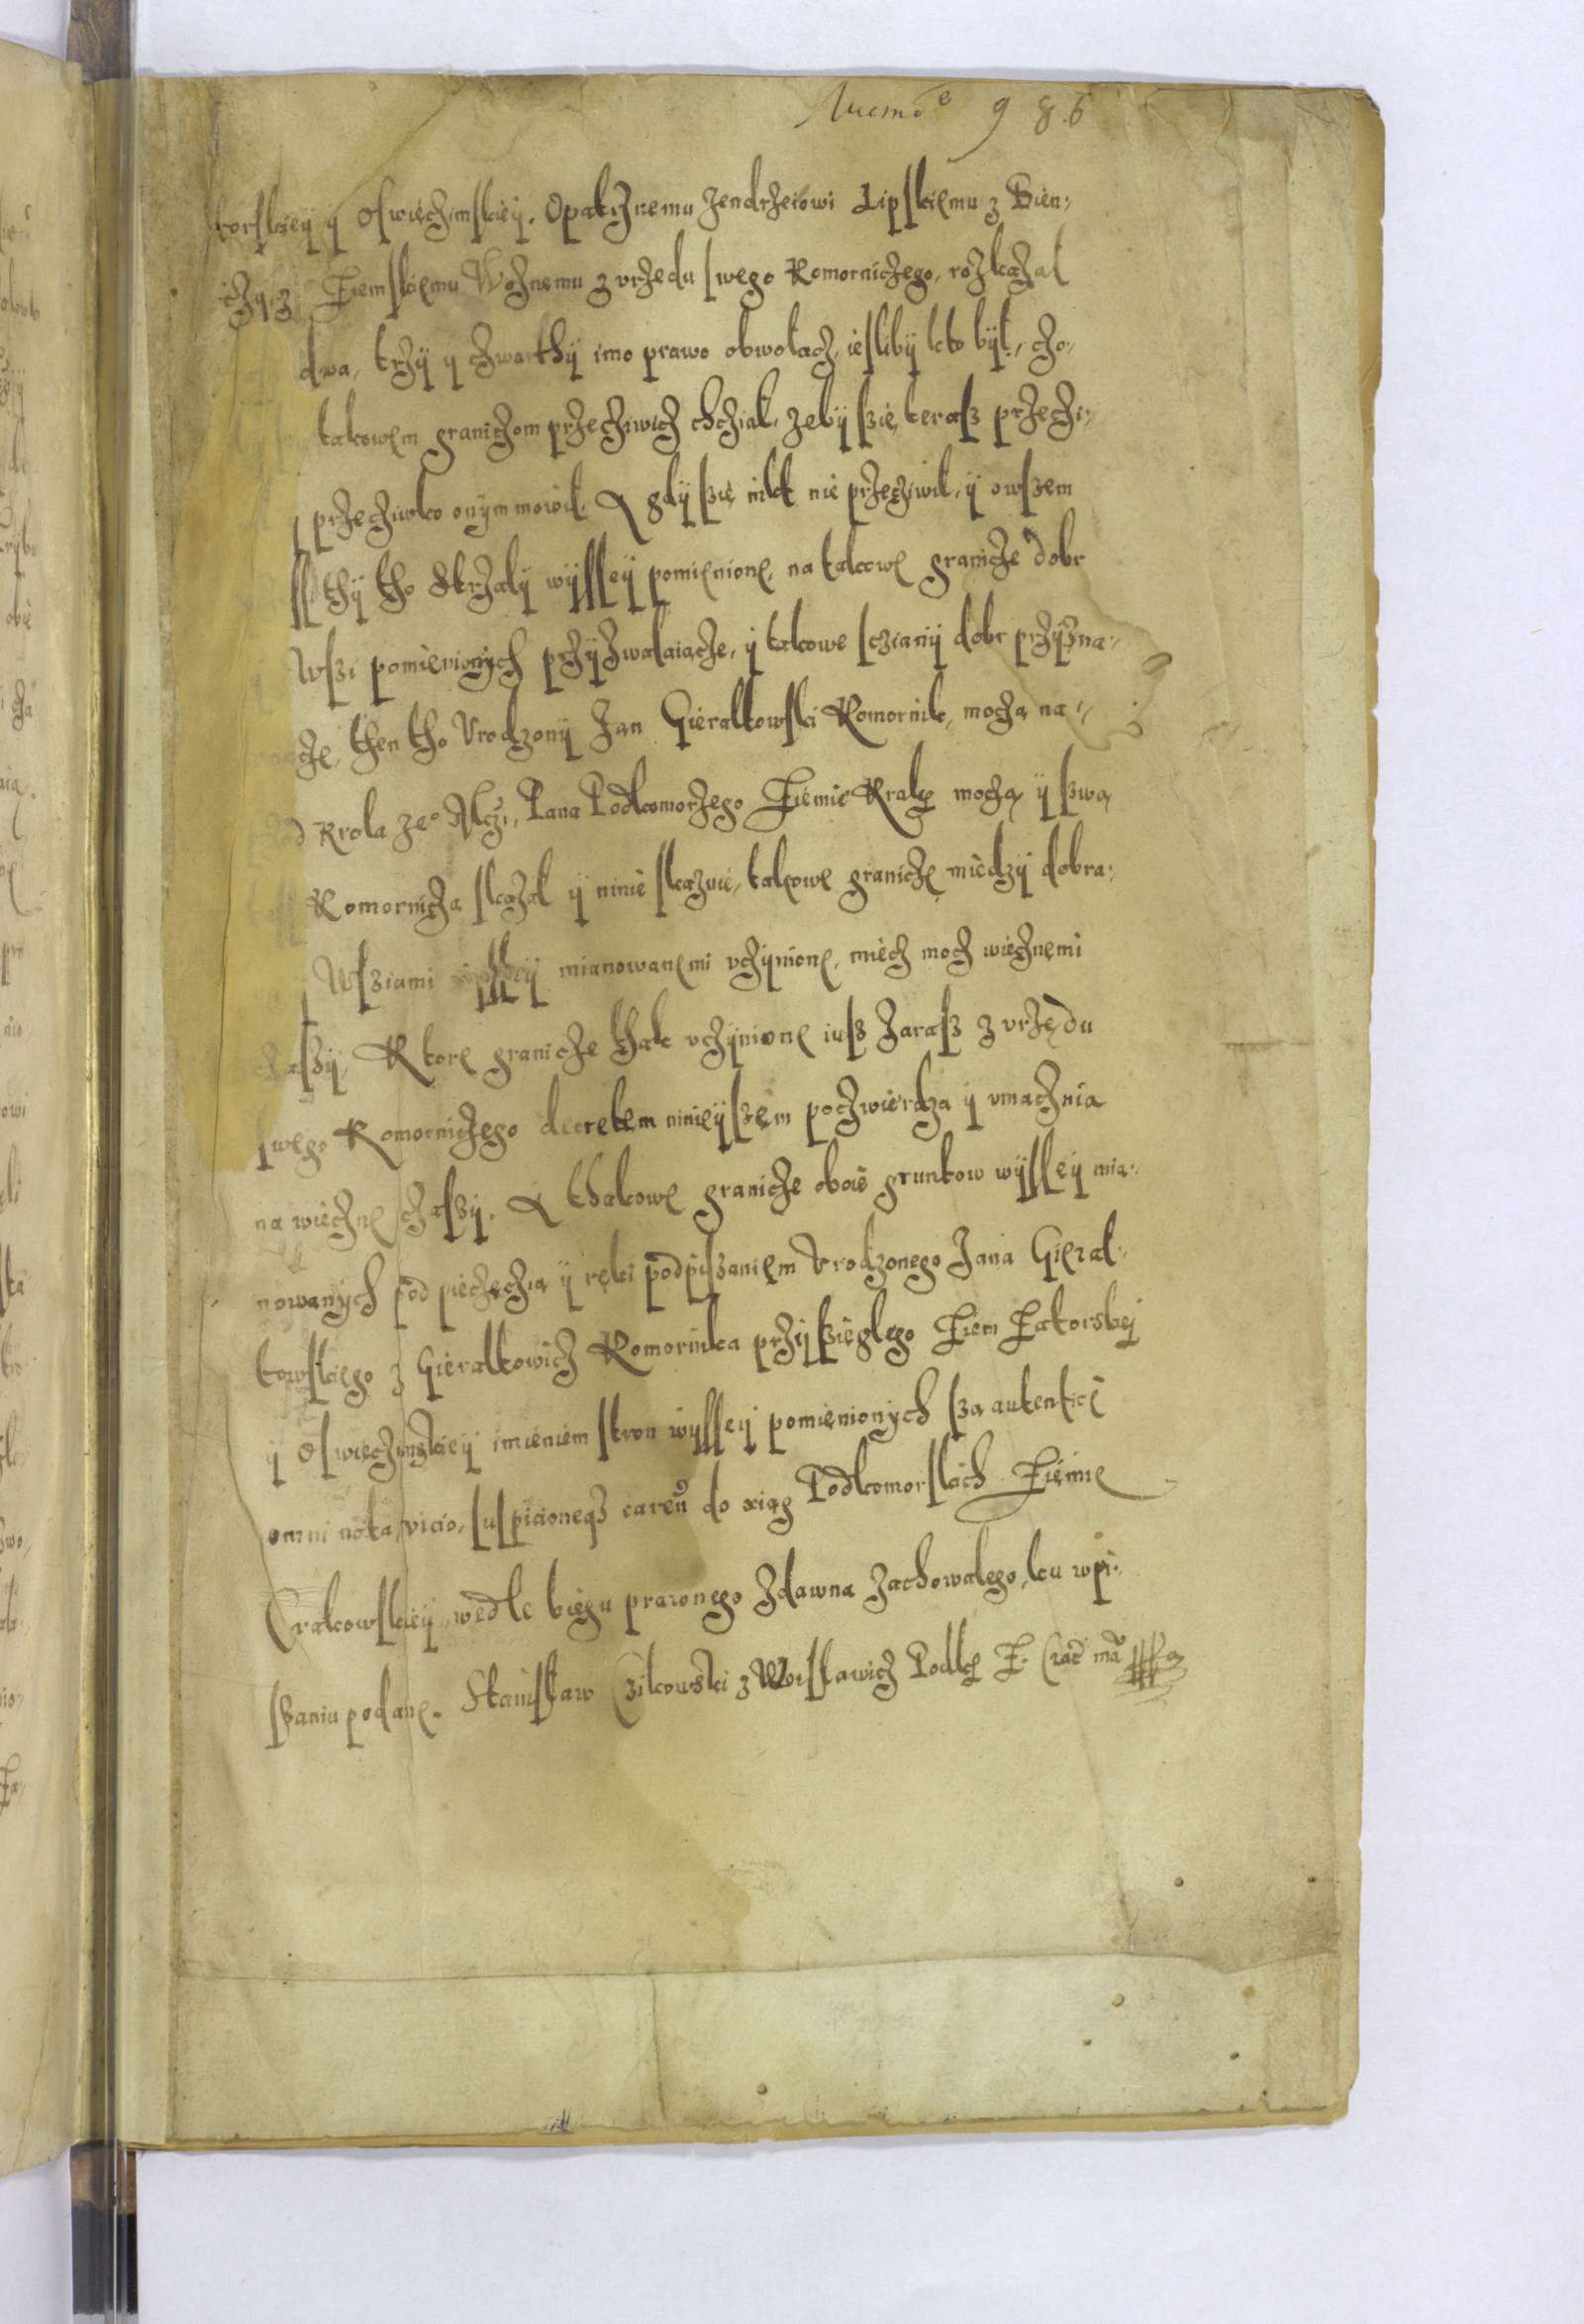 986
torskiey y Oswięczimskiey. Opatrznemu Jendrzeiowi Lipskiemu z Bien:
Ziemskiemu Woznemu z vrzedu swego Komorniczego, rozkazał
dwa, trzÿ y czwarthÿ imo prawo obwołacz, iesliby kto bÿł, czo
takowem graniczom przecziwicz chcział, zebÿ szię teraz przeczi:
przecziwko onym mowił. A gdÿ szię nikt nie przecziwił, ÿ owszem
thÿ tho Strzalÿ wÿssey pomienione, na takowe granicze dobr
Wszi pomienionÿch przÿzwalaiącze, ÿ takowe scziany dobr przÿzna:
cze, then tho Vrodzony Jan Gierałtowski Komornik, moczą na:
Krola Je° Mczi, Pana Podkomorzego Ziemie Krak moczą ÿ szwą
Komorniczą skazał ÿ ninie skazuie, takowe granicze miedzÿ dobra:
Wsziami wÿssey mianowanemi vczÿnione, miecz mocz wiecznemi
czaszÿ, Ktore granicze thak vczÿnione iusz zarasz z vrzędu
swego Komorniczego decretem ninieÿszem poczwierdza ÿ vmacznia
na wieczne czaszÿ. A thakowe granicze oboie gruntow wÿssey mia:
nowanÿch pod pieczęczią ÿ ręki podpiszaniem Vrodzonego Jana Gierał:
towskiego z Gierałtowicz Komornika przÿszięgłego Ziem Zatorskiej
ÿ Oswieczimskieÿ imieniem stron wÿssey pomienionÿch sza autentice
omni nota, vicio, suspicioneqz careñ do xiąg Podkomorskich Ziemie
Crakowskieÿ, wedle biegu prawnego zdawna zachowałego, ku wpi:
szaniu podane. Stanisław Czikowski z Woisławicz Podk Z. Crac mã